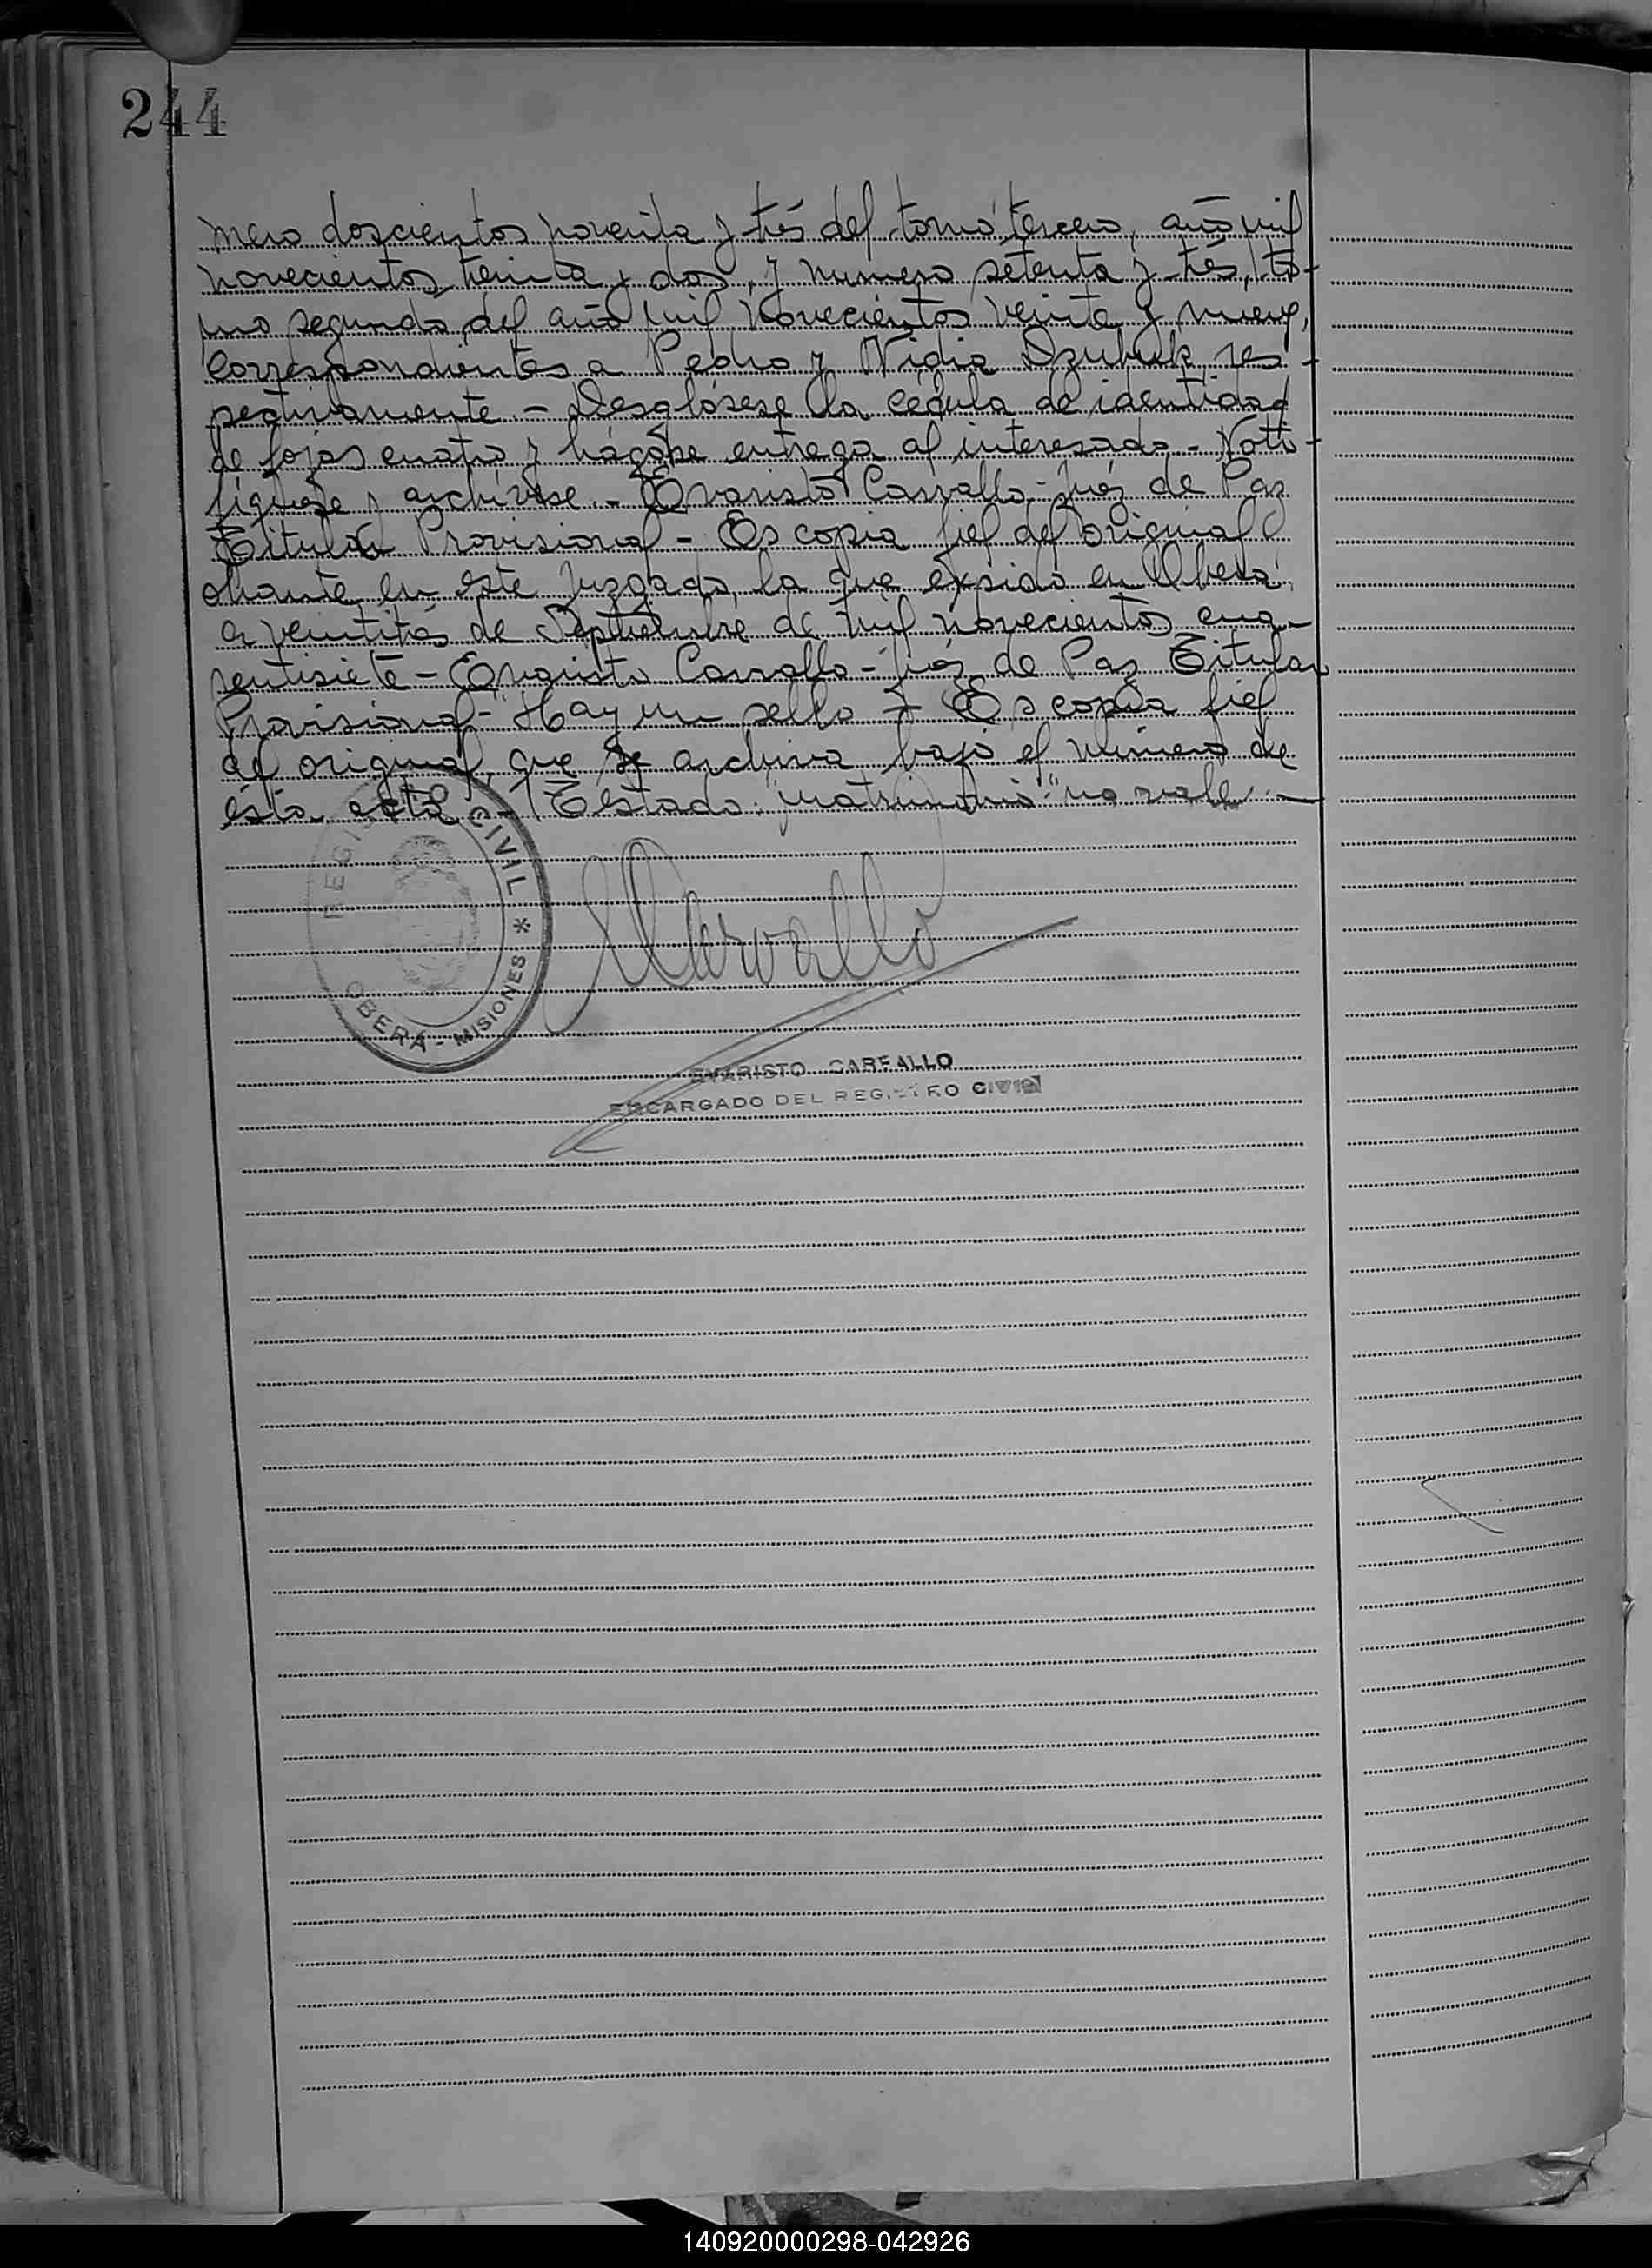 244
mero doscientos noventa y trés del tomo tercero, año mil
novecientos treinta y dos, y numero setenta y trés, to-
mo segundo del año mil novecientos veinte y nueve,
correspondientes a Pedro y Nidia Dzubuk res-
pectivamente.- Desglósese la cédula de identidad
de fojas cuatro y hágase entrega al interesado.- Noti-
fíquese y archívese.- Evaristo Carvallo - Juéz de Paz
Titular Provisional - Es copia fiel del original
obrante en este Juzgado, la que expido en Oberá
a veintitrés de Septiembre de mil novecientos cua-
rentisiete - Evaristo Carvallo - Juéz de Paz Titular
Provisional - Hay un sello - Es copia fiel
del original que se archiva bajo el número de
ésta acta - Testado: "matrimonio" no vale.-
REGISTRO CIVIL * OBERÁ - MISIONES *
Carvallo
EVARISTO CARVALLO
ENCARGADO DEL REGISTRO CIVIL
140920000298-042926